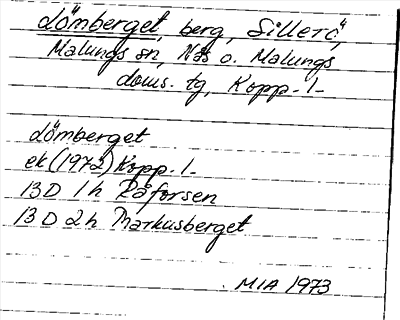 Lömberget, berg, Sillerö,
Malungs sn, Näs o. Malungs
doms. tg, Kopp. l.
Lömberget
ek (1972) Kopp. l.
13 D 1 h Råforsen
13 D 2 h Markusberget
MIA 1973